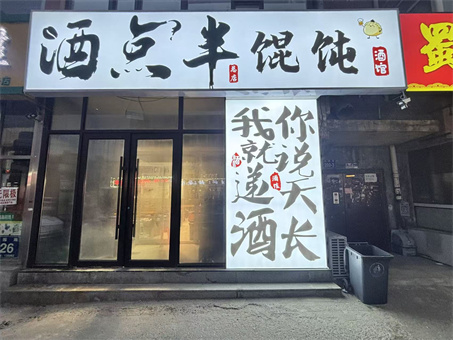 酒点半馄饨
酒馆
你说天长
我就递酒
蜀
26